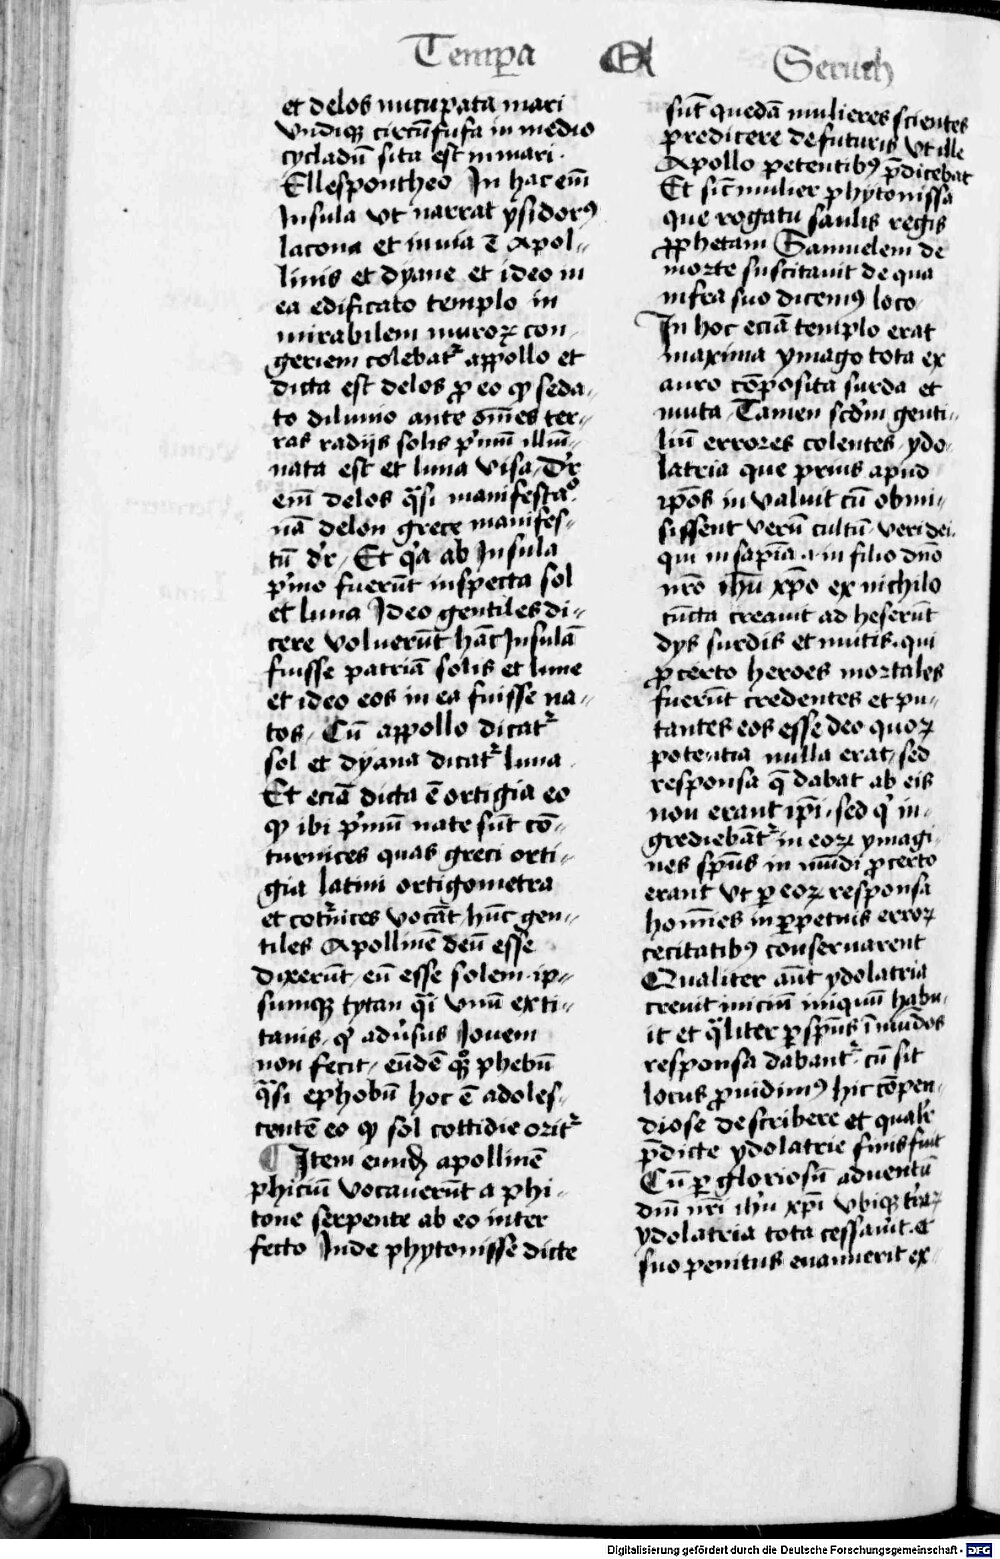 Temp̱a Et Seruch
et delos nūcupata mari
Vndiqꝫ circūfusa in medio
cycladū sita est in mari.
Ellespontheo In hac em̄
Insula vt narrat ysidorꝰ
lacona et in via ē Apol-
linis et dyane et ideo in
ea edificato templo in
mirabilem muroꝝ con-
geriem colebatʳ appollo et
dicta est delos ꝓ eo qꝫ seda-
to diluuio ante om̄es ter-
ras radijs solis pʳmū illūi-
nata est et luna visa, Dʳr
em̄ delos q̄si manifesta.
nā delon grece manifes-
tū dʳr, Et qʳa ab Insula
pʳmo fuerūt inspecta sol
et luna Ideo gentiles di-
cere voluerūt hāc Insulā
fuisse patriā solis et lune
et ideo eos in ea fuisse na-
tos, Cū appollo dicatʳ
sol et dyana dicatʳ luna.
Et eciā dicta ē ortigia eo
qꝫ ibi pʳmū nate sūt co-
turnices quas greci orti-
gia latini ortigometra
et cotʳnices vocāt hūc gen-
tiles Apollinē deū esse
dixerūt, eū esse solem ip-
sumqꝫ tytan q̄i vnū ex ti-
tanis, qʳ aduʳsus Jouem
non fecit, eūdē qꝫ phebū
q̄si ephobū hoc ē adoles-
centē eo qꝫ sol cottidie oritʳ
¶ Item eundē apollinē
phiciū vocauerūt a phi-
tone serpente ab eo inter
fecto Inde phytonisse dicte
sūt quedā mulieres scientes
predicere de futuris vt ille
Apollo petentibꝰ p̄dicebat
Et sic mulier phytonissa
que rogatu saulis regis
ꝓphetam Samuelem de
morte suscitauit de qua
infra suo dicemꝰ loco
In hoc eciā templo erat
maxima ymago tota ex
auro cōposita surda et
muta, Tamen scdʳm genti-
liū errores colentes ydo-
latria que prius apud
ip̄os in valuit cū obmi-
sissent verū cultū veri dei.
qui in sapiā .i. in filio dn̄o
nr̄o ih̄u xp̄o ex nichilo
cūcta creauit ad heserūt
dys surdis et mutis. qui
ꝓcerto heroes mortales
fuerūt credentes et pu-
tantes eos esse deo quoꝝ
potentia nulla erat, sed
responsa q̄ dabāt ab eis
non erant ip̄i, sed qʳ in-
grediebātʳ in eoꝝ ymagi-
nes sp̄us in mūdi ꝓcerto
erant vt ꝑ eoꝝ responsa
hom̄es in ꝑpetuis erroꝝ
cecitatibꝰ conseruarent
Qualiter aūt ydolatria
creuit iniciū iniquū habu-
it et qʳliter ꝑ sp̄us īmūdos
responsa dabantʳ. cū sit
locus ꝓuidimꝰ hic cōpen-
diose describere et qualʳr
p̄dicte ydolatrie finis fuit
Cū ꝑ gloriosū aduentū
dn̄i nr̄i ih̄u xp̄i vbiqꝫ tʳraꝝ
ydolatria tota cessauit. et
suo penitus euanuerit ex-
Digitalisierung gefördert durch die Deutsche Forschungsgemeinschaft - DFG